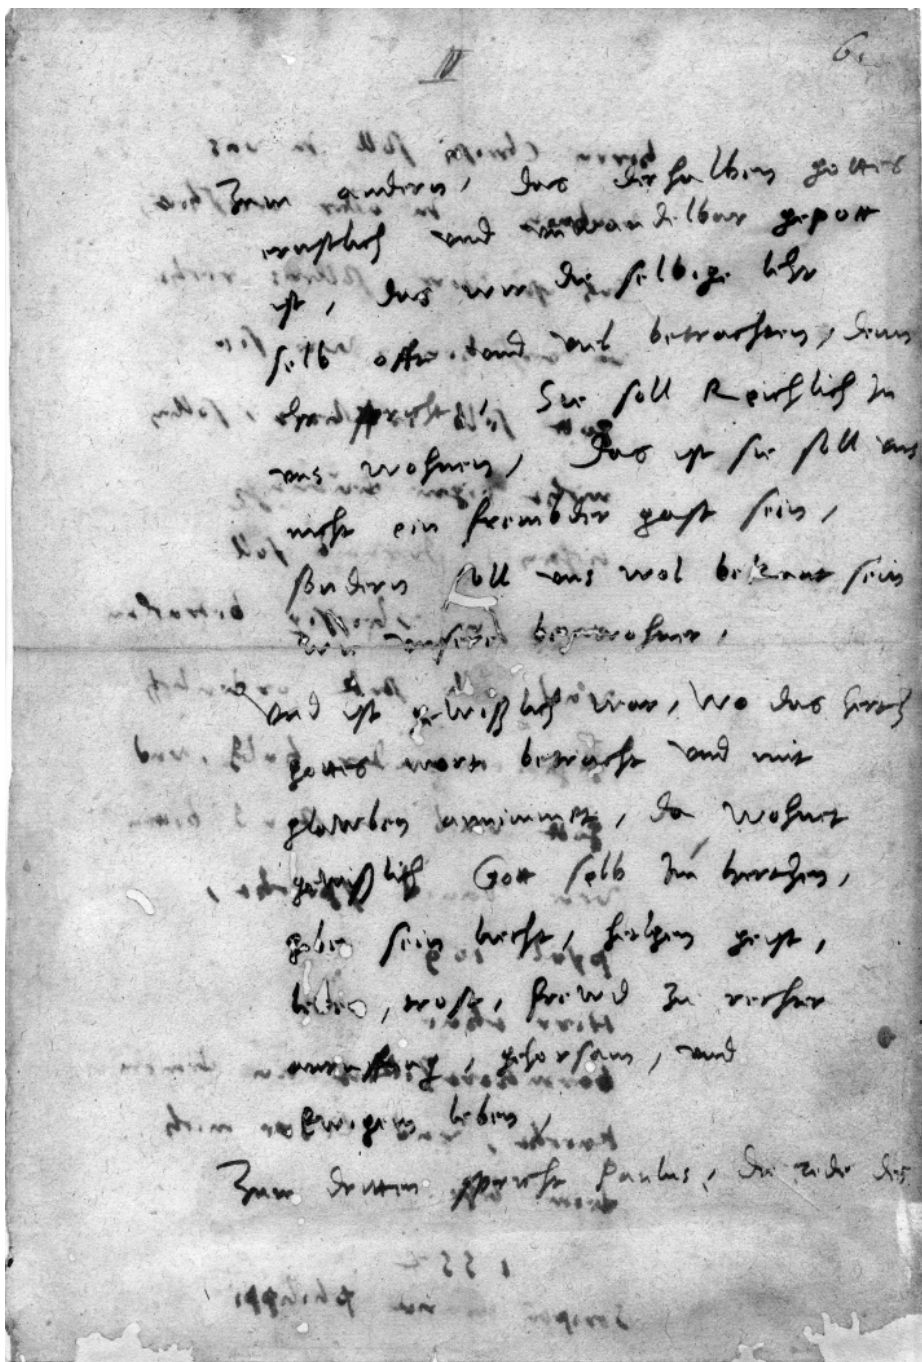 IV
6.
Zum andern, das derhalben gottes
ernstlich und unwandelbar gepott
ist, das wir die selbige lehr
selb offt und viel betrachten, denn
ehr spricht, Sie soll Reichlich in
uns wohnen, Das ist sie soll uns
nicht ein frembder gast sein,
sondern soll uns wol bekant sein
wie unsere beywohner,
und ist gewißlich war, wo das hertz
gottes wort betracht und mit
glawben annimmet, da wohnet
gewißlich Gott selb im hertzen,
geben sein liecht, heilgen geist,
leben, trost, frewd zu rechter
anruffung, gehorsam, und
Ewigem leben,
Zum dritten spricht Paulus, die rede des